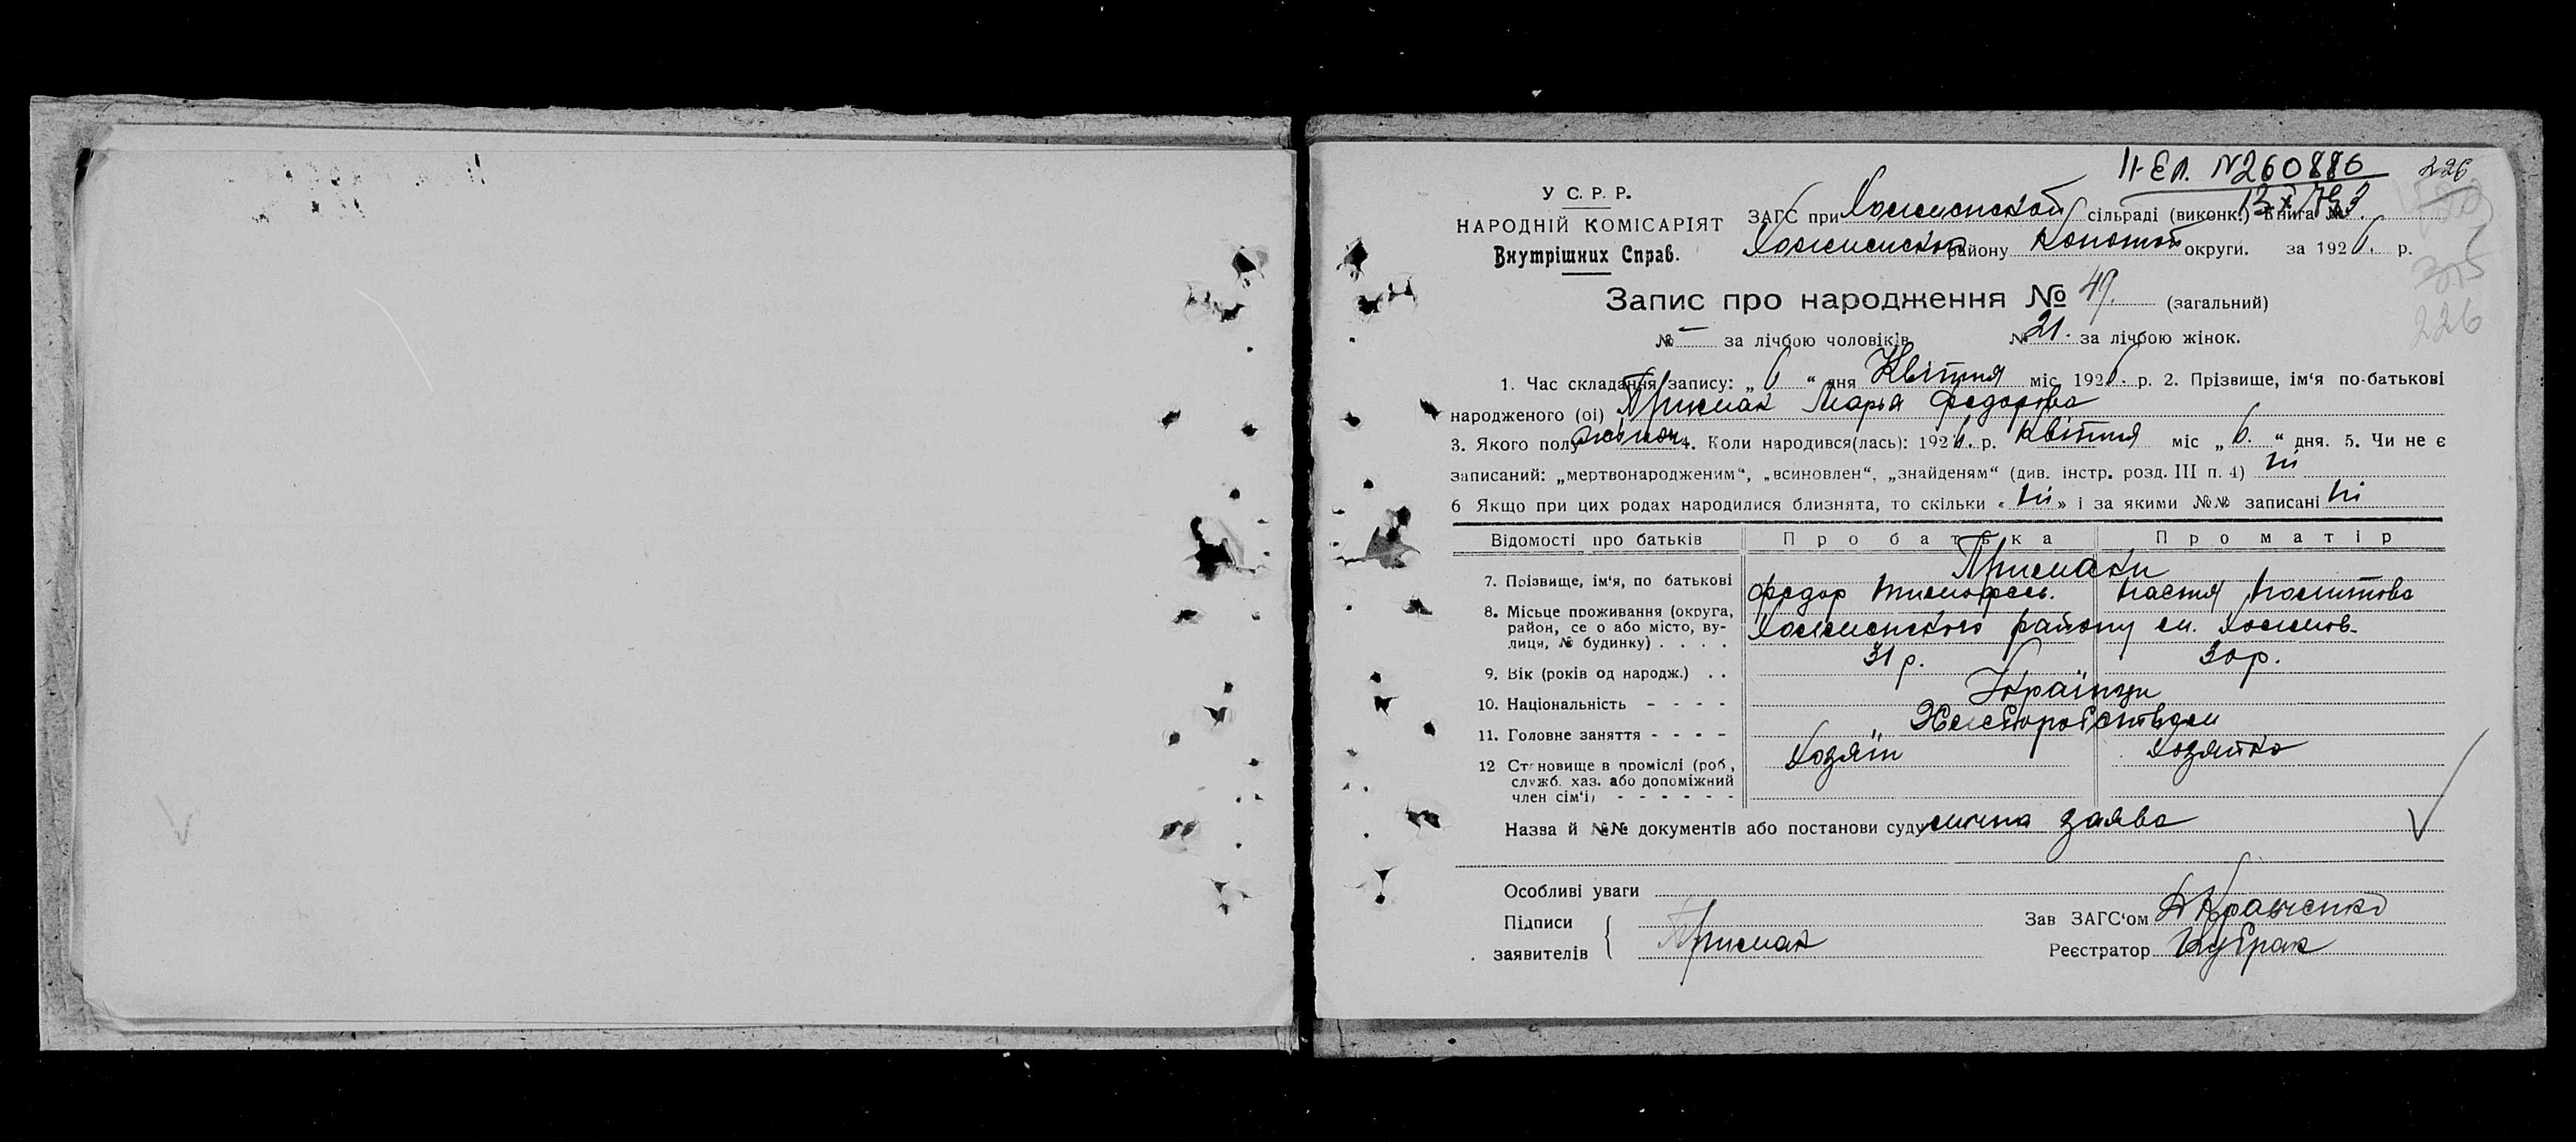 ІІ-ЄЛ. №260886
226
У С. Р. Р.
НАРОДНІЙ КОМІСАРІЯТ
Внутрішних Справ.
ЗАГС при сільраді (виконк.) Книга №
району Конотоп округи. за 1926. р.
305
226
Запис про народження № 49. (загальний)
№ – за лічбою чоловіків № 21. за лічбою жінок.
1. Час складання запису: „ 6 “ дня Квітня міс 1926. р. 2. Прізвище, ім‘я по-батькові
народженого (ої) Примак Марья Федорова
3. Якого полу жіноч. 4. Коли народився(лась): 1926. р. Квітня міс „ 6. “ дня. 5. Чи не є
записаний: „мертвонародженим“, „всиновлен“, „знайденям“ (див. інстр. розд. III п. 4) ні
6 Якщо при цих родах народилися близнята, то скільки « ні » і за якими №№ записані ні
Відомості про батьків Про батька Про матір
Примаки
7. Прізвище, ім‘я, по батькові Федор Тимофеев. Настя
8. Місьце проживання (округа, район, се о або місто, вулиця, № будинку) . . . . району
9. Вік (років од народж.) . . 31 р. 30 р.
10. Національність - - - - Українци
11. Головне заняття - - - - Хлеборобством
12 Становище в проміслі (роб., служб. хаз. або допоміжний член сім‘і) - - - - - - Хозяїн хозяйка
Назва й №№ документів або постанови суду лична заява
Особливі уваги
Підписи
заявителів Примак
Зав ЗАГС‘ом Кравченко
Реєстратор